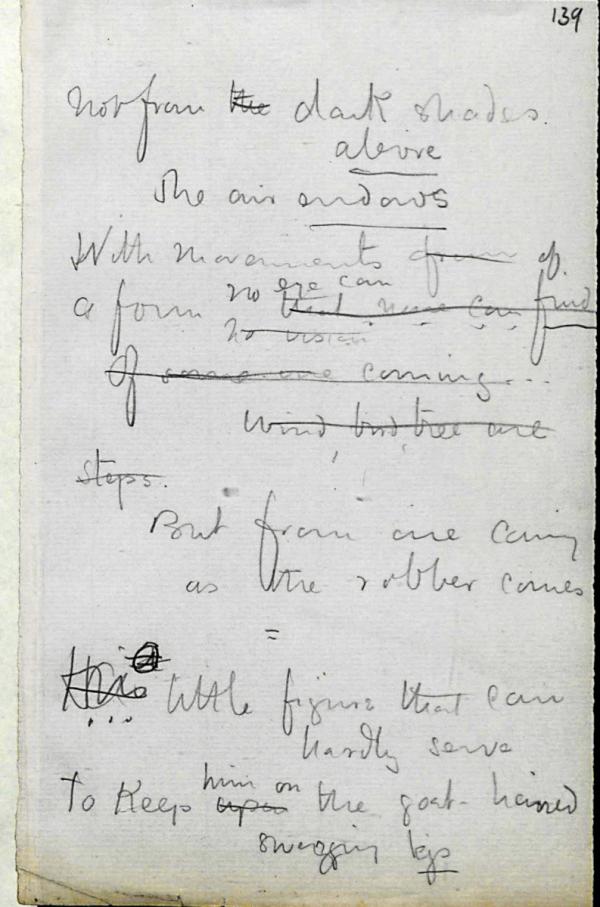 139
Not from the dark shades.
above
The air endows
With movements from of
a form no eye can
that none can find
no vision
Of someone coming...
Wind, bird, tree are
steps.
But from one coming
as the robber comes
=
This a little figure that can
hardly serve
To Keep him on
upon the goat-haired
swagging legs